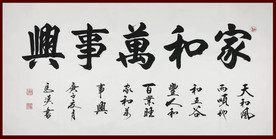 家和萬事興
天和風
雨順地
和五谷
豐人和
百業
家和萬
事興
庚子
書